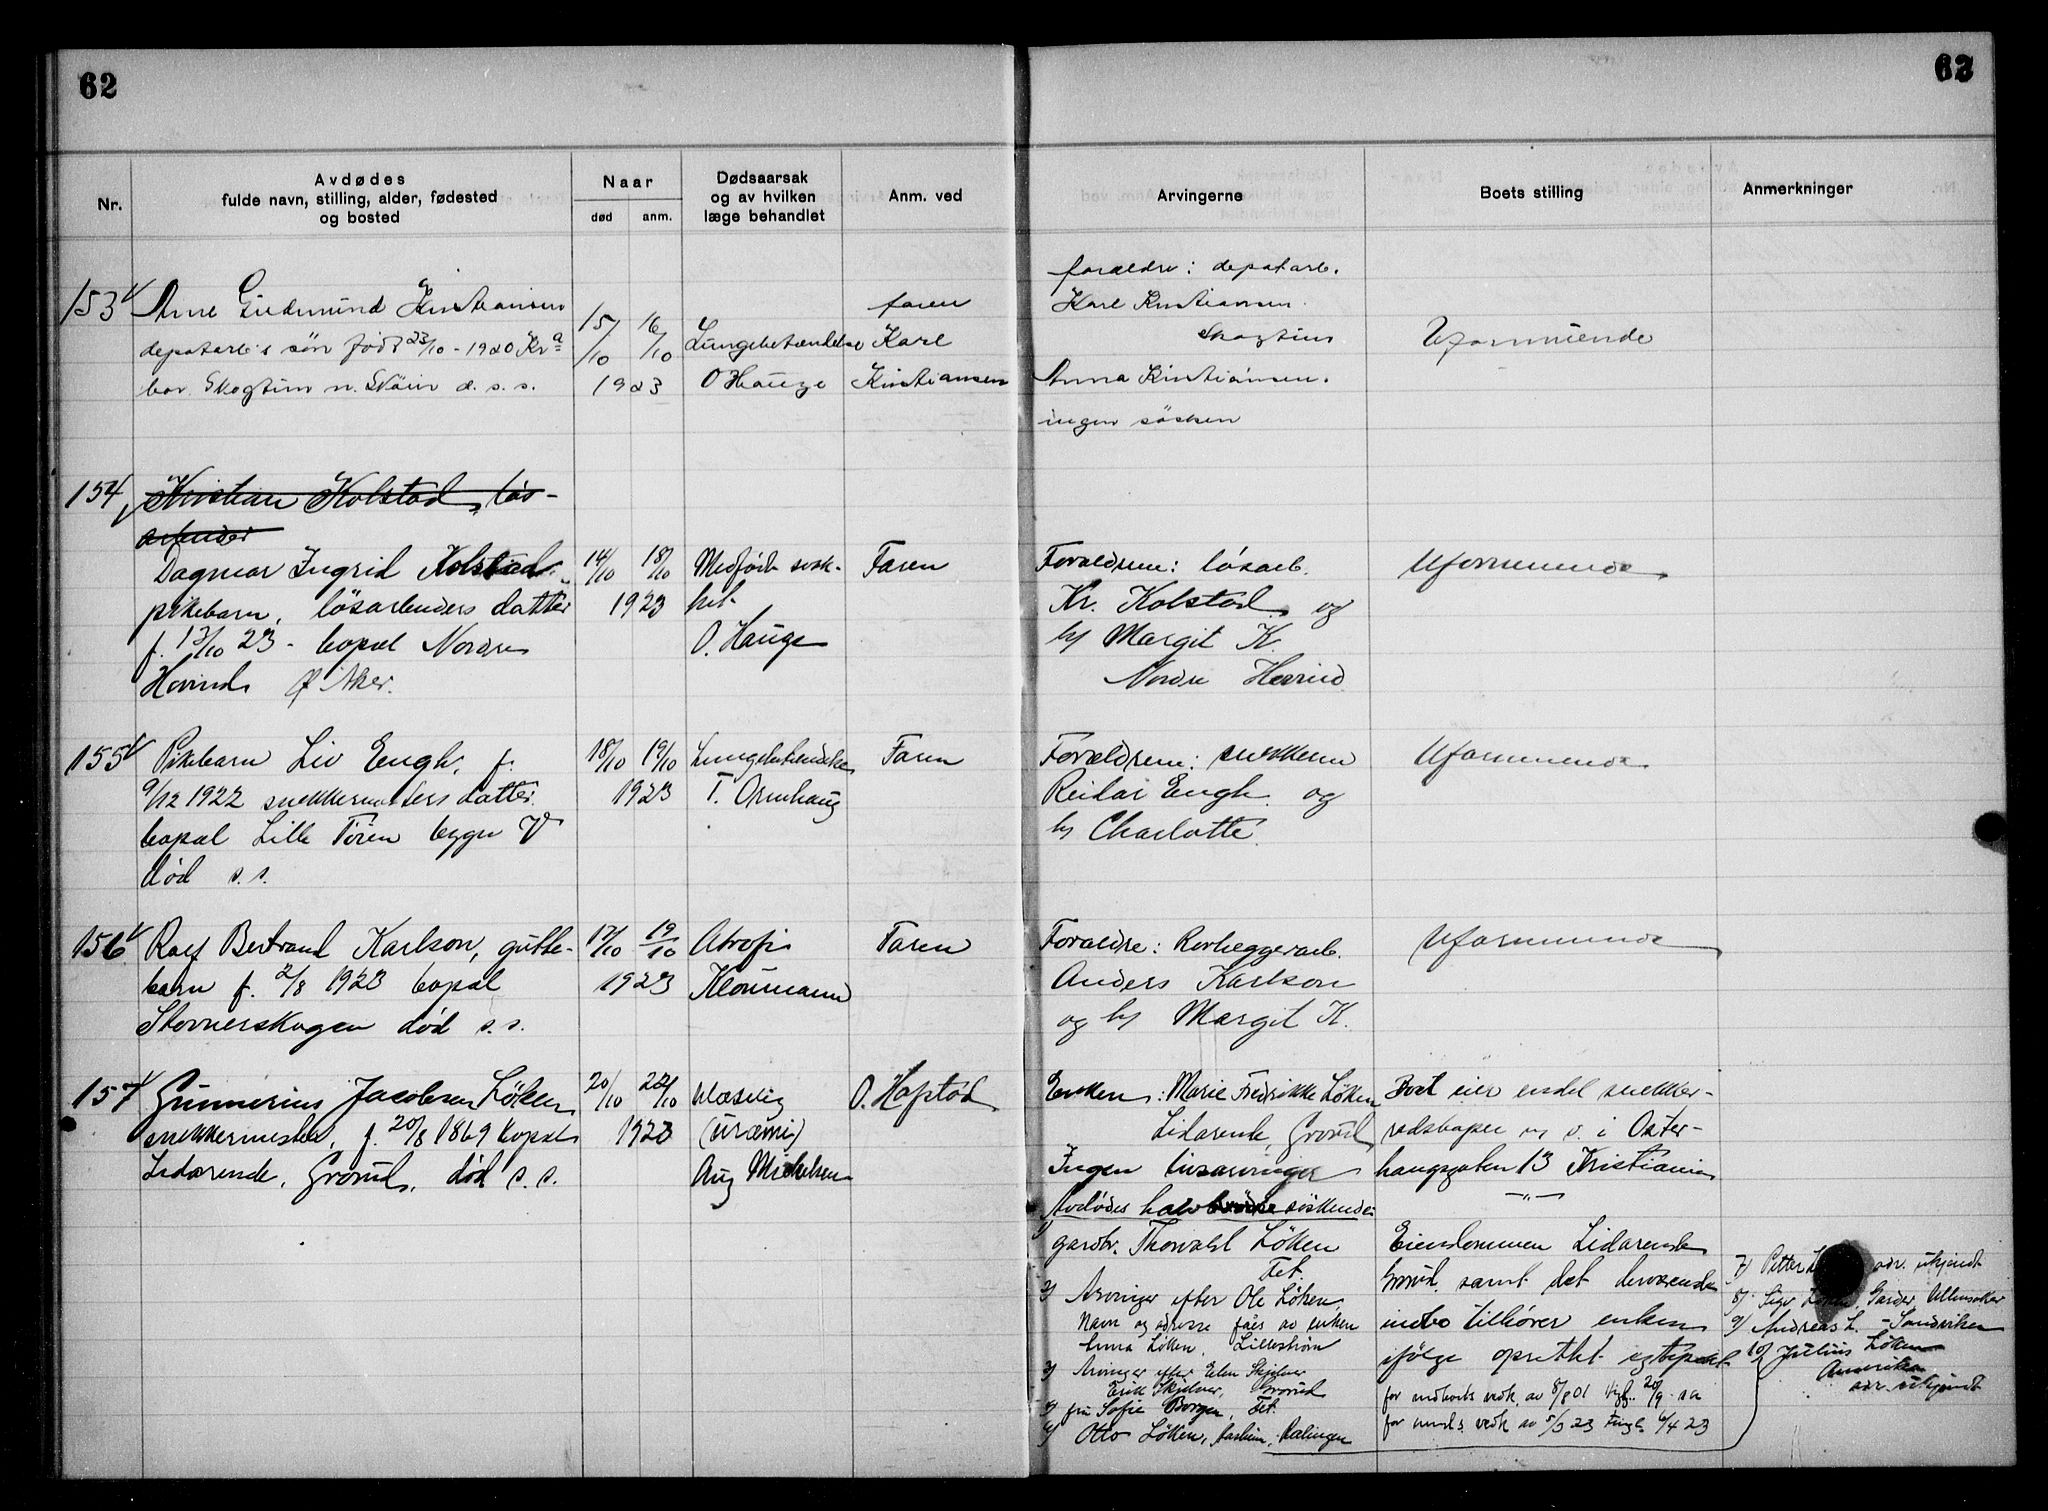 62
63
Nr.
Avdødes
fulde navn, stilling, alder, fødested
og bosted
Naar
død
anm.
Dødsaarsak
og av hvilken
læge behandlet
Anm. ved
Arvingerne
Boets stilling
Anmerkninger
153
Arne Gudmund Kristiansen
depotarb's søn født 23/10 - 1920 Kr a
bor. Skogtun n. d. s. s.
15/10
16/10
1923
Lungebetændelse
O Hauge
faren
Karl
Kristiansen
forældre: depotarb.
Karl Kristiansen.
Skogtun
Anna Kristiansen.
ingen søsken
Uformuende
154
Kristian Kolstad, løs-
arbeider
Dagmar Ingrid Kolstad
pikebarn, løsarbeiders datter
f. 13/10 23 - bopæl Nordre
Hovind Ø Aker.
14/10
18/10
1923
Medfødt svak-
het
O. Hauge
Faren
Foraldrene: løsarb.
Kr. Kolstad og
h/ Margit K.
Nordre Hovind
Uformuende
155
Pikebarn Liv Engh, f.
9/12 1922 snekkermesters datter.
bopæl Lille Tøien bygn V
død s. s.
18/10
19/10
1923
Lungebetændelse
T. Ormhaug
Faren
Forældrene: snekkerm
Reidar Engh og
h/ Charlotte.
Uformuende
156
Ralf Bertrand Karlson, gutte-
barn f. 2/8 1923 bopæl
Stovnerskogen død s. s.
17/10
19/10
1923
Atrofi
Kloumann
Faren
Foraldre: Rørleggerarb.
Anders Karlson
og h/ Margit K.
Uformuende
157
Gunnerius Jacobsen Løken
snekkermester, f. 20/8 1869 bopæl
Lidarende, Grorud, død s. s.
20/10
22/10
1923
(uræmi)
Aug Michelsen
O. Hofstad
Enken: Marie Fredrikke Løken
Lidarende, Grorud
Ingen livsarvinger
Avdødes halv søskende:
1) gardbr. Thorvald Løken
Fet.
2) Arvinger efter Ole Løken,
Navn og adresse fåes av enken
Anna Løken, Lillestrøm
3) Arvinger efter Elen Skjelner
Erik Skjelner, Grorud
fru Sofie Borgen, Fet.
Otto Løken, Rælingen
Boet eier endel snekker-
redskaper og s. i Oster-
hausgaten 13 Kristiania
—„—
Eiendommen Lidarende
Grorud, samt det derværende
indbo tilhører enken
ifølge oprettet egtepakt
for indboets vedk. av 8/8 01 tgl. 20/9 s a
for eiend's vedk. av 5/3 23 tingl. 6/4 23
7) Petter L adr. ukjendt
8) Sigv Løken, Garder, Ullensaker
9) Andreas L. - Sandviken
10) Julius Løken
Amerika
adr. ukjendt